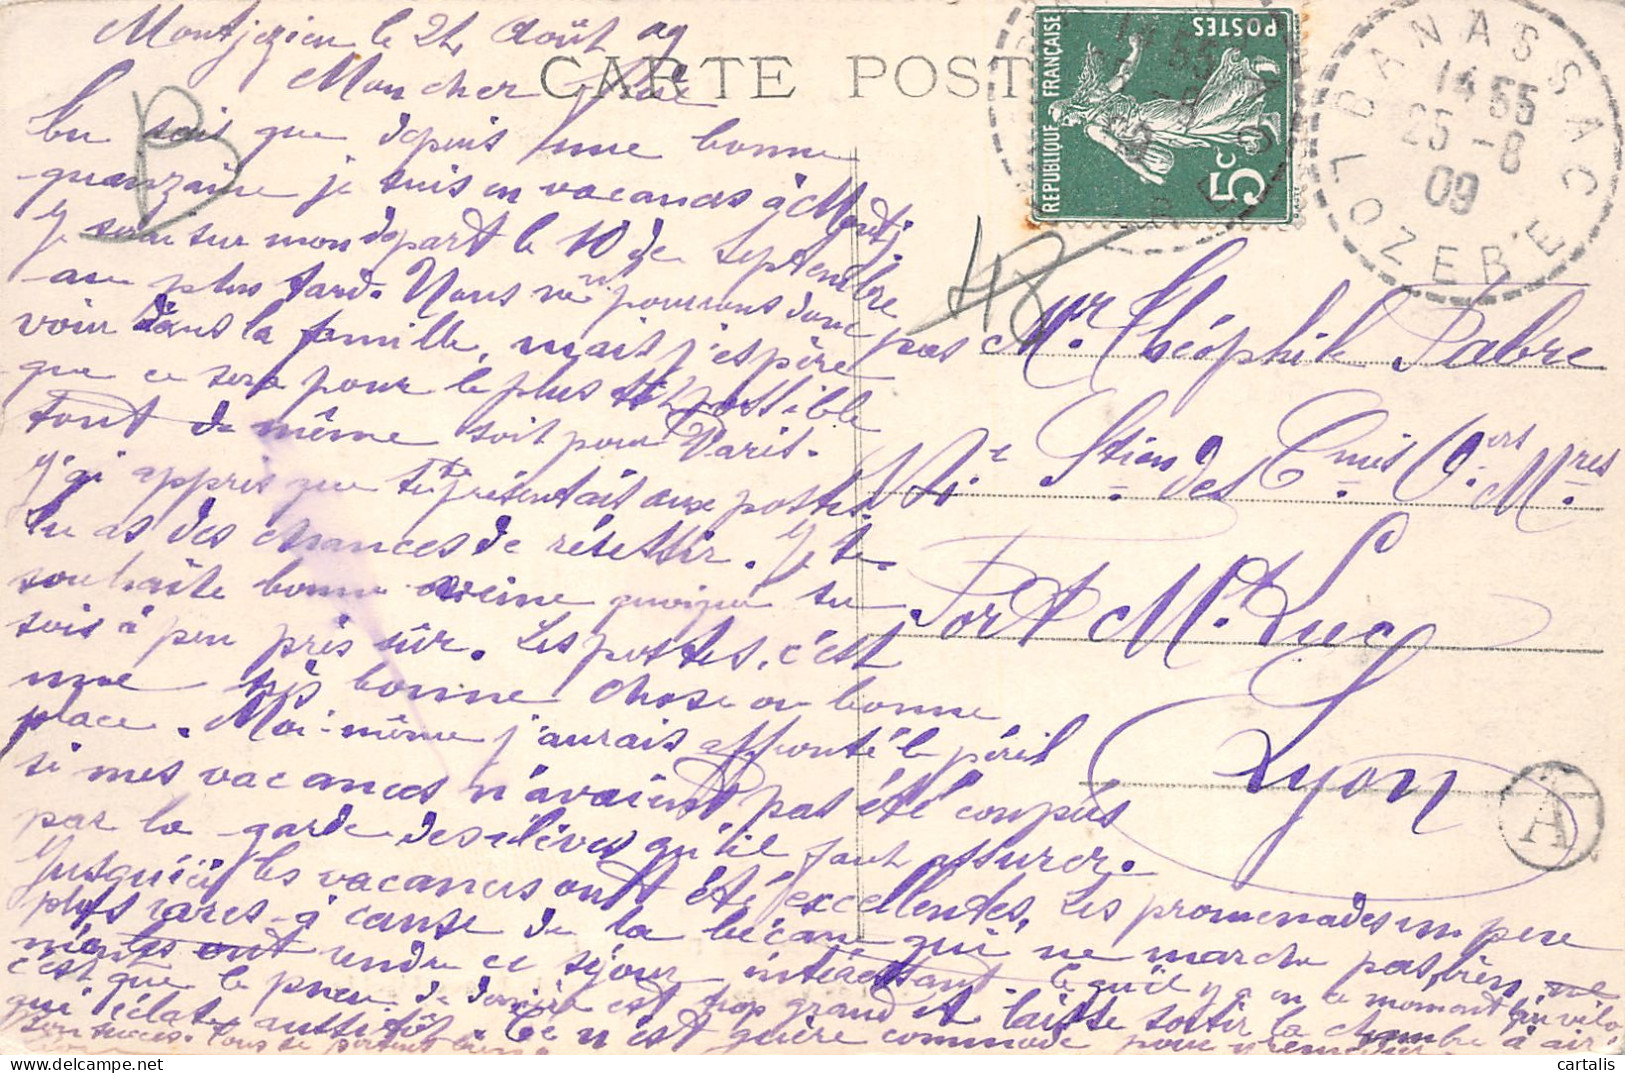 Montjézieu le 24 Août 09
CARTE POST
Mon cher
Tu sais que depuis une bonne
quanzaine je suis en vacances à Montj.
Je serai sur mon départ le 10 de Septembre
au plus tard. Nous ne pourrons donc pas
voir dans la famille, mais j'espère
que ce sera pour le plus tôt possible
tout de même soit pour Paris.
J'ai appris que tu te présentais aux postes.
Tu as des chances de réussir. Je te
souhaite bonne veine quoique tu
sois à peu près sûr. Les postes, c'est
une très bonne chose ou bonne
place. Moi-même j'aurais affronté le péril
si mes vacances n'avaient pas été coupées
par la garde des élèves qu'il faut assurer.
Jusqu'ici les vacances ont été excellentes. Les promenades un peu
plus rares à cause de la bécane qui ne marche pas bien
ont rendu ce séjour intéressant. Ce qu'il y a en ce moment
c'est que le pneu de derrière est trop grand et laisse sortir la chambre à air
qui éclate aussitôt. Ce n'est guère commode pour
son succès. Tous se portent bien.
REPUBLIQUE FRANÇAISE
POSTES
5c
BANASSAC
14 55
25 -8
09
LOZERE
B
Mr. Théophile Fabre
Stion des Cmis Oers Mres
Fort St. Luc
Lyon
A
cartalis
www.delcampe.net